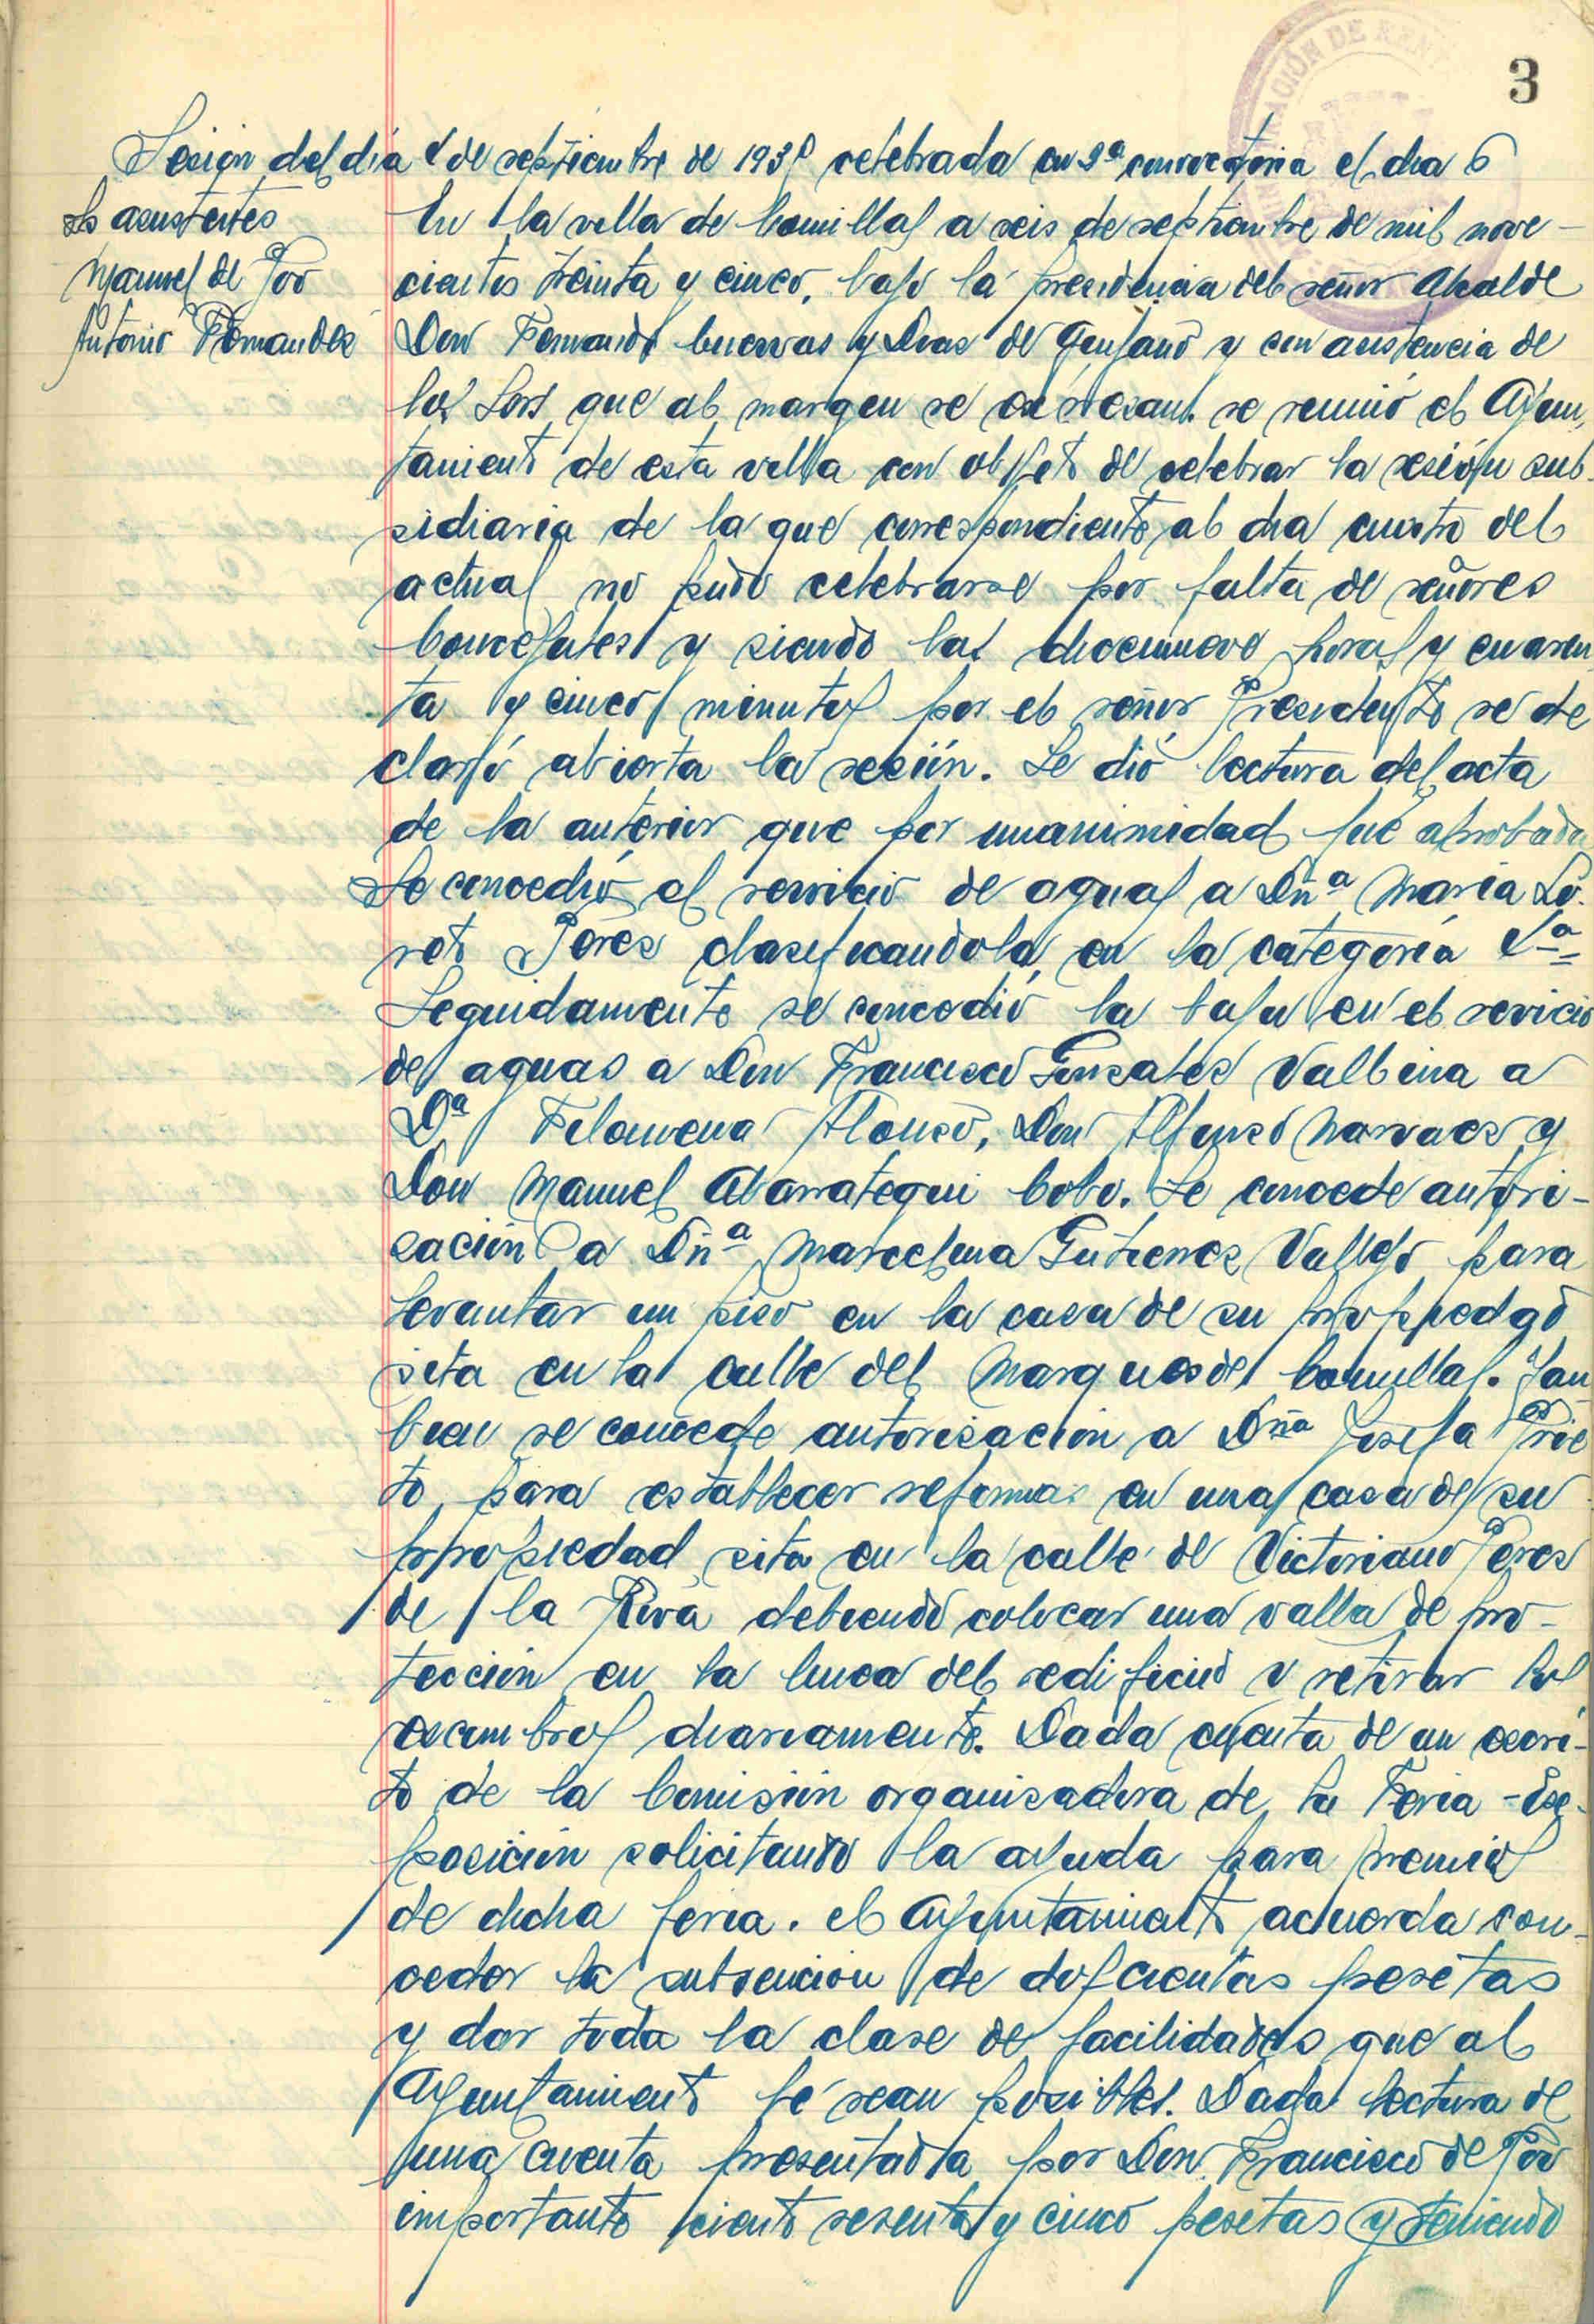 3
Sesion del dia 4 de septiembre de 1935 celebrada en 2ª convocatoria el dia 6
Srs asistentes
Manuel de Poo
Antonio Fernandez
En la villa de Comillas a seis de septiembre de mil nove-
cientos treinta y cinco, bajo la presidencia del señor Alcalde
Don Fernando Cuevas y Diaz de y con asistencia de
los Sres que al margen se expresan. se reunió el Ayun
tamiento de esta villa con objeto de celebrar la sesión sub-
sidiaria de la que correspondiente al dia cuatro del
actual no pudo celebrarse por falta de señores
Concejales y siendo las diecinueve horas y cuaren
ta y cinco minutos por el señor Presidente se de
claró abierta la sesión. Se dió lectura del acta
de la anterior que por unanimidad fué aprobada
Se concedió el servicio de aguas a Dñª Maria Lo-
reto Peres clasificandola en la categoria 4ª =
Seguidamente se concedió la baja en el servicio
de aguas a Don Francisco Gonzales Valbina a
Dª Filomena Alonso, Don Alfonso Narvaez y
Don Manuel Abarrategui Cobo. Se concede autori-
zación a Dñª Marcelina Gutierrez Vallejo para
levantar un piso en la casa de su propiedad
sita en la calle del Marques de Comillas. Tam
bien se concede autorizacion a Dña Josefa Prie
to para establecer reformas en una casa de su
propiedad sita en la calle de Victoriano Perez
de la Riva debiendo colocar una valla de pro-
tección en la linea del edificio y retirar los
escombros diariamente. Dada cuenta de un escri-
to de la Comisión organizadora de la Feria - Ex-
posición solicitando la ayuda para premios
de dicha feria. el Ayuntamiento acuerda con-
ceder la subvencion de doscientas pesetas
y dar toda la clase de facilidades que al
Ayuntamiento le sean posibles. Dada lectura de
una cuenta presentada por Don Francisco de Poo
importante ciento sesenta y cinco pesetas y teniendo